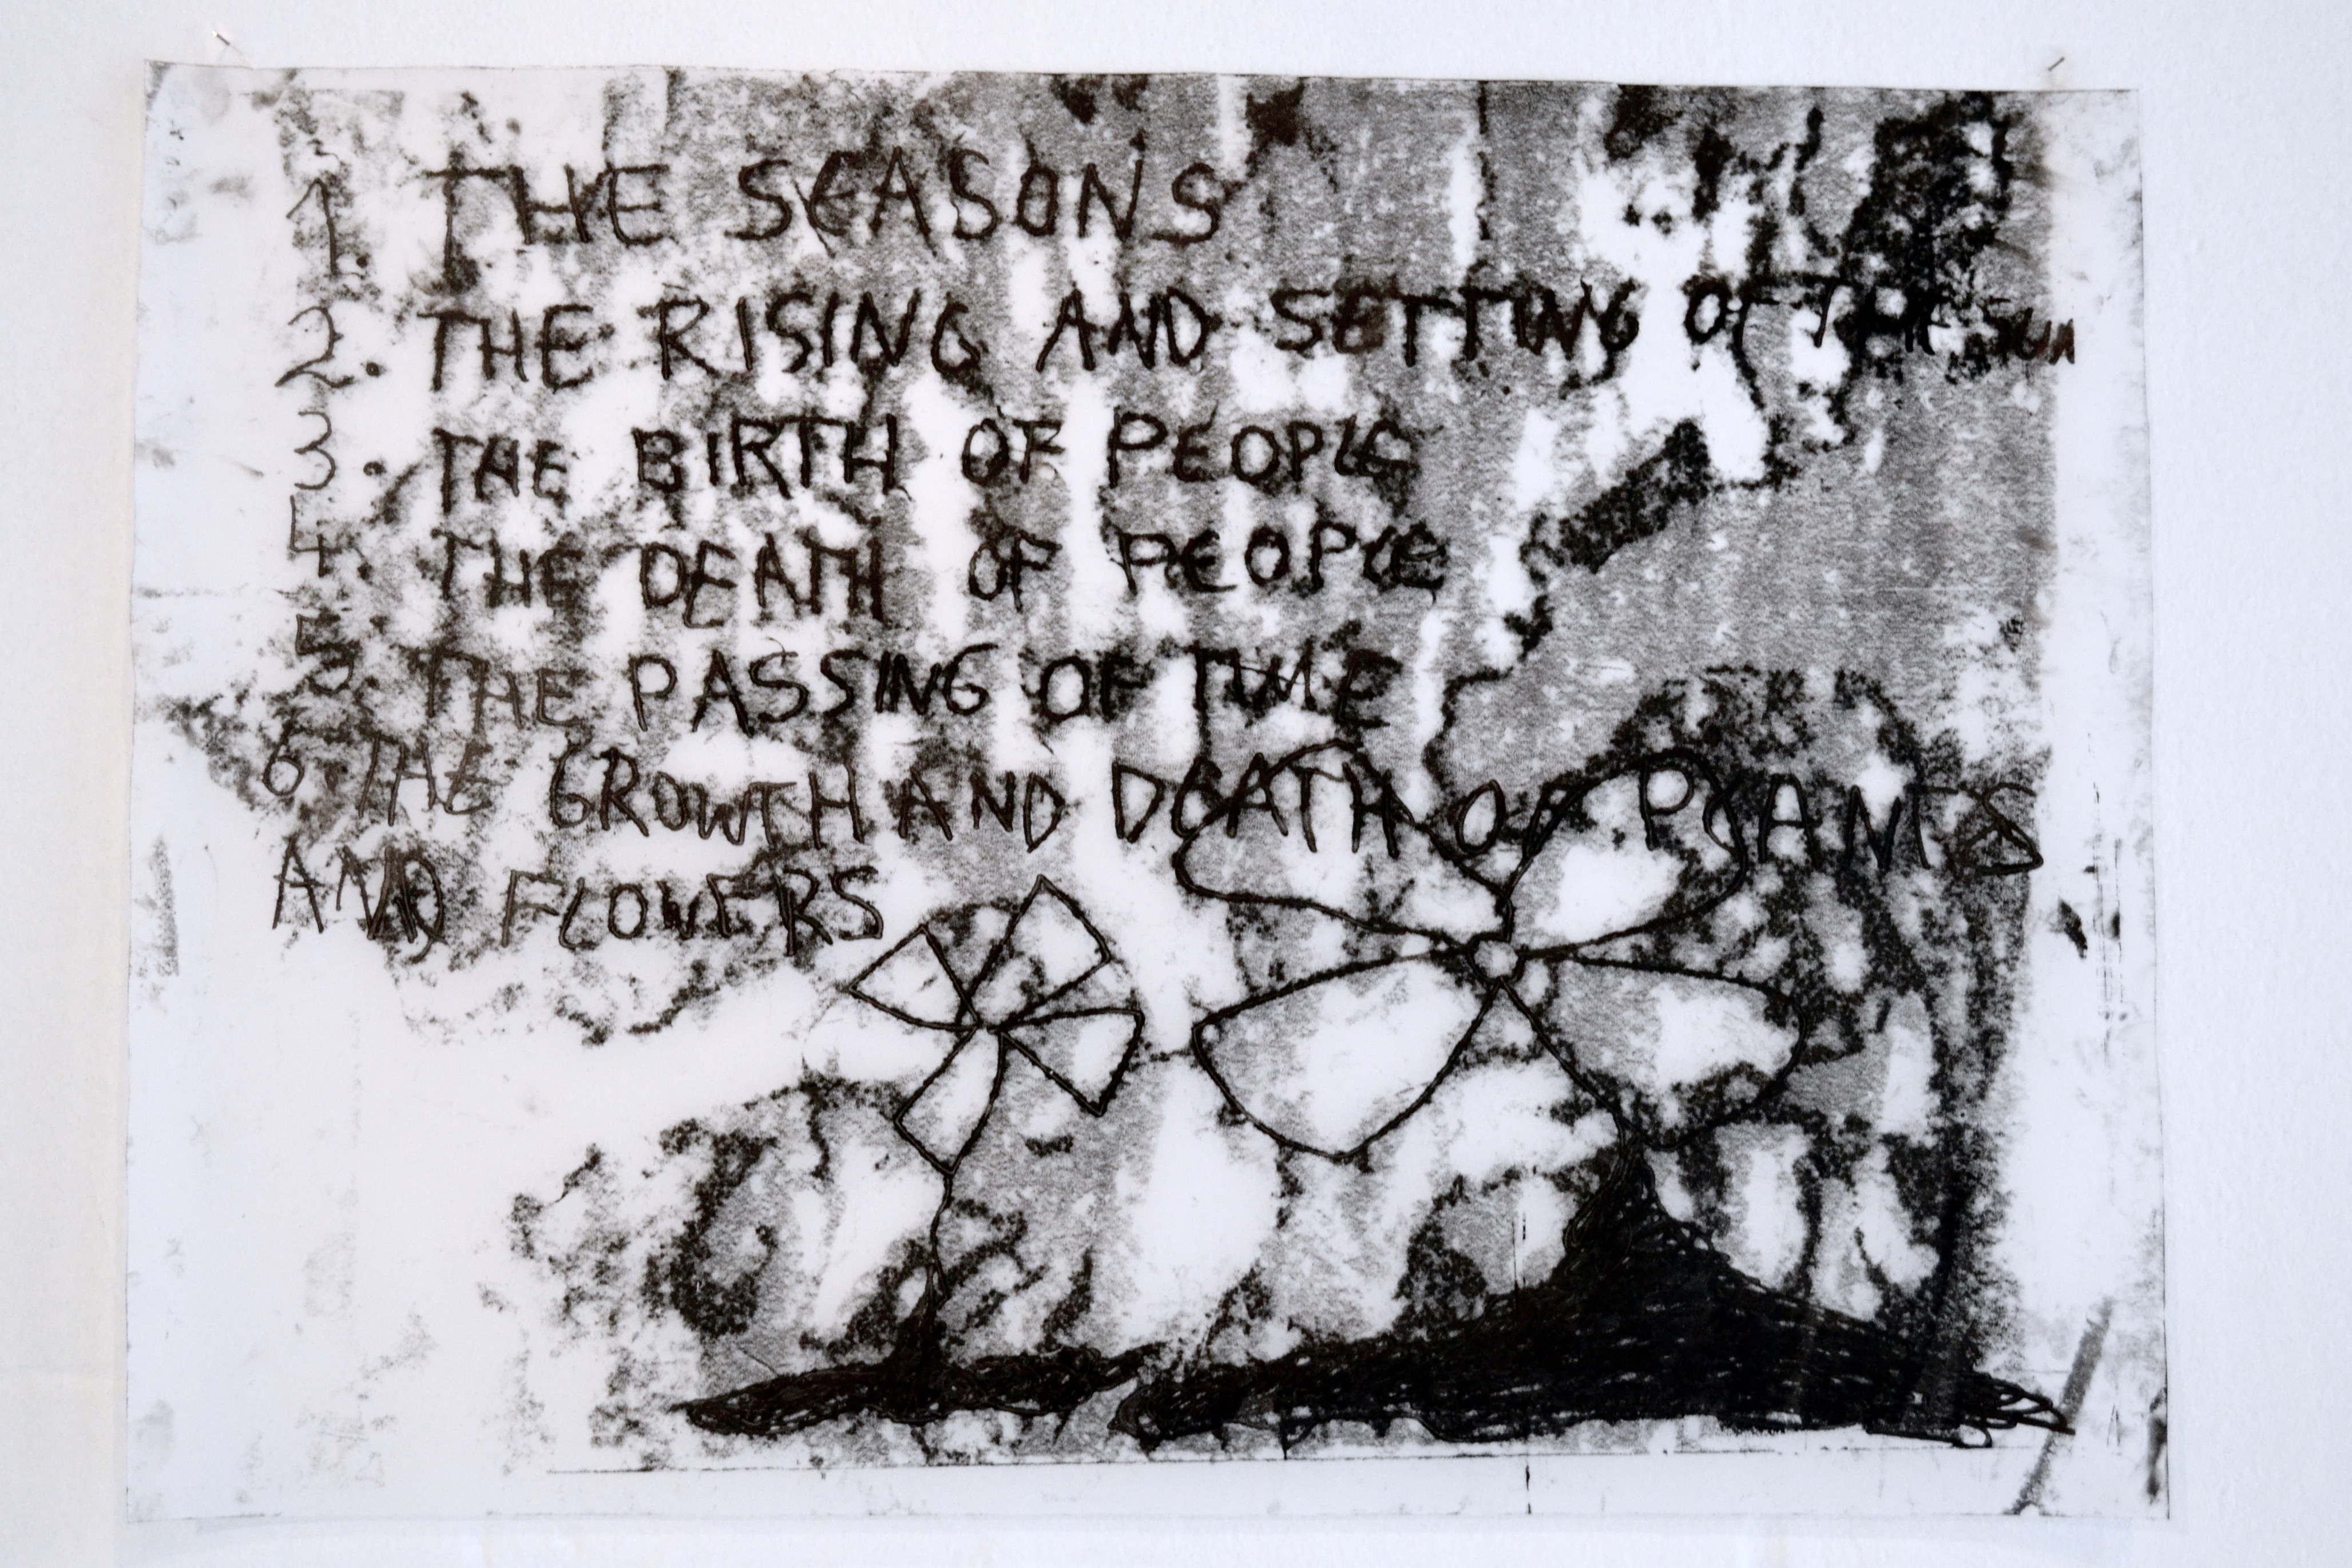 1. THE SEASONS
2. THE RISING AND SETTING OF THE SUN
3. THE BIRTH OF PEOPLE
4. THE DEATH OF PEOPLE
5. THE PASSING OF TIME
6. THE GROWTH AND DEATH OF PLANTS
AND FLOWERS